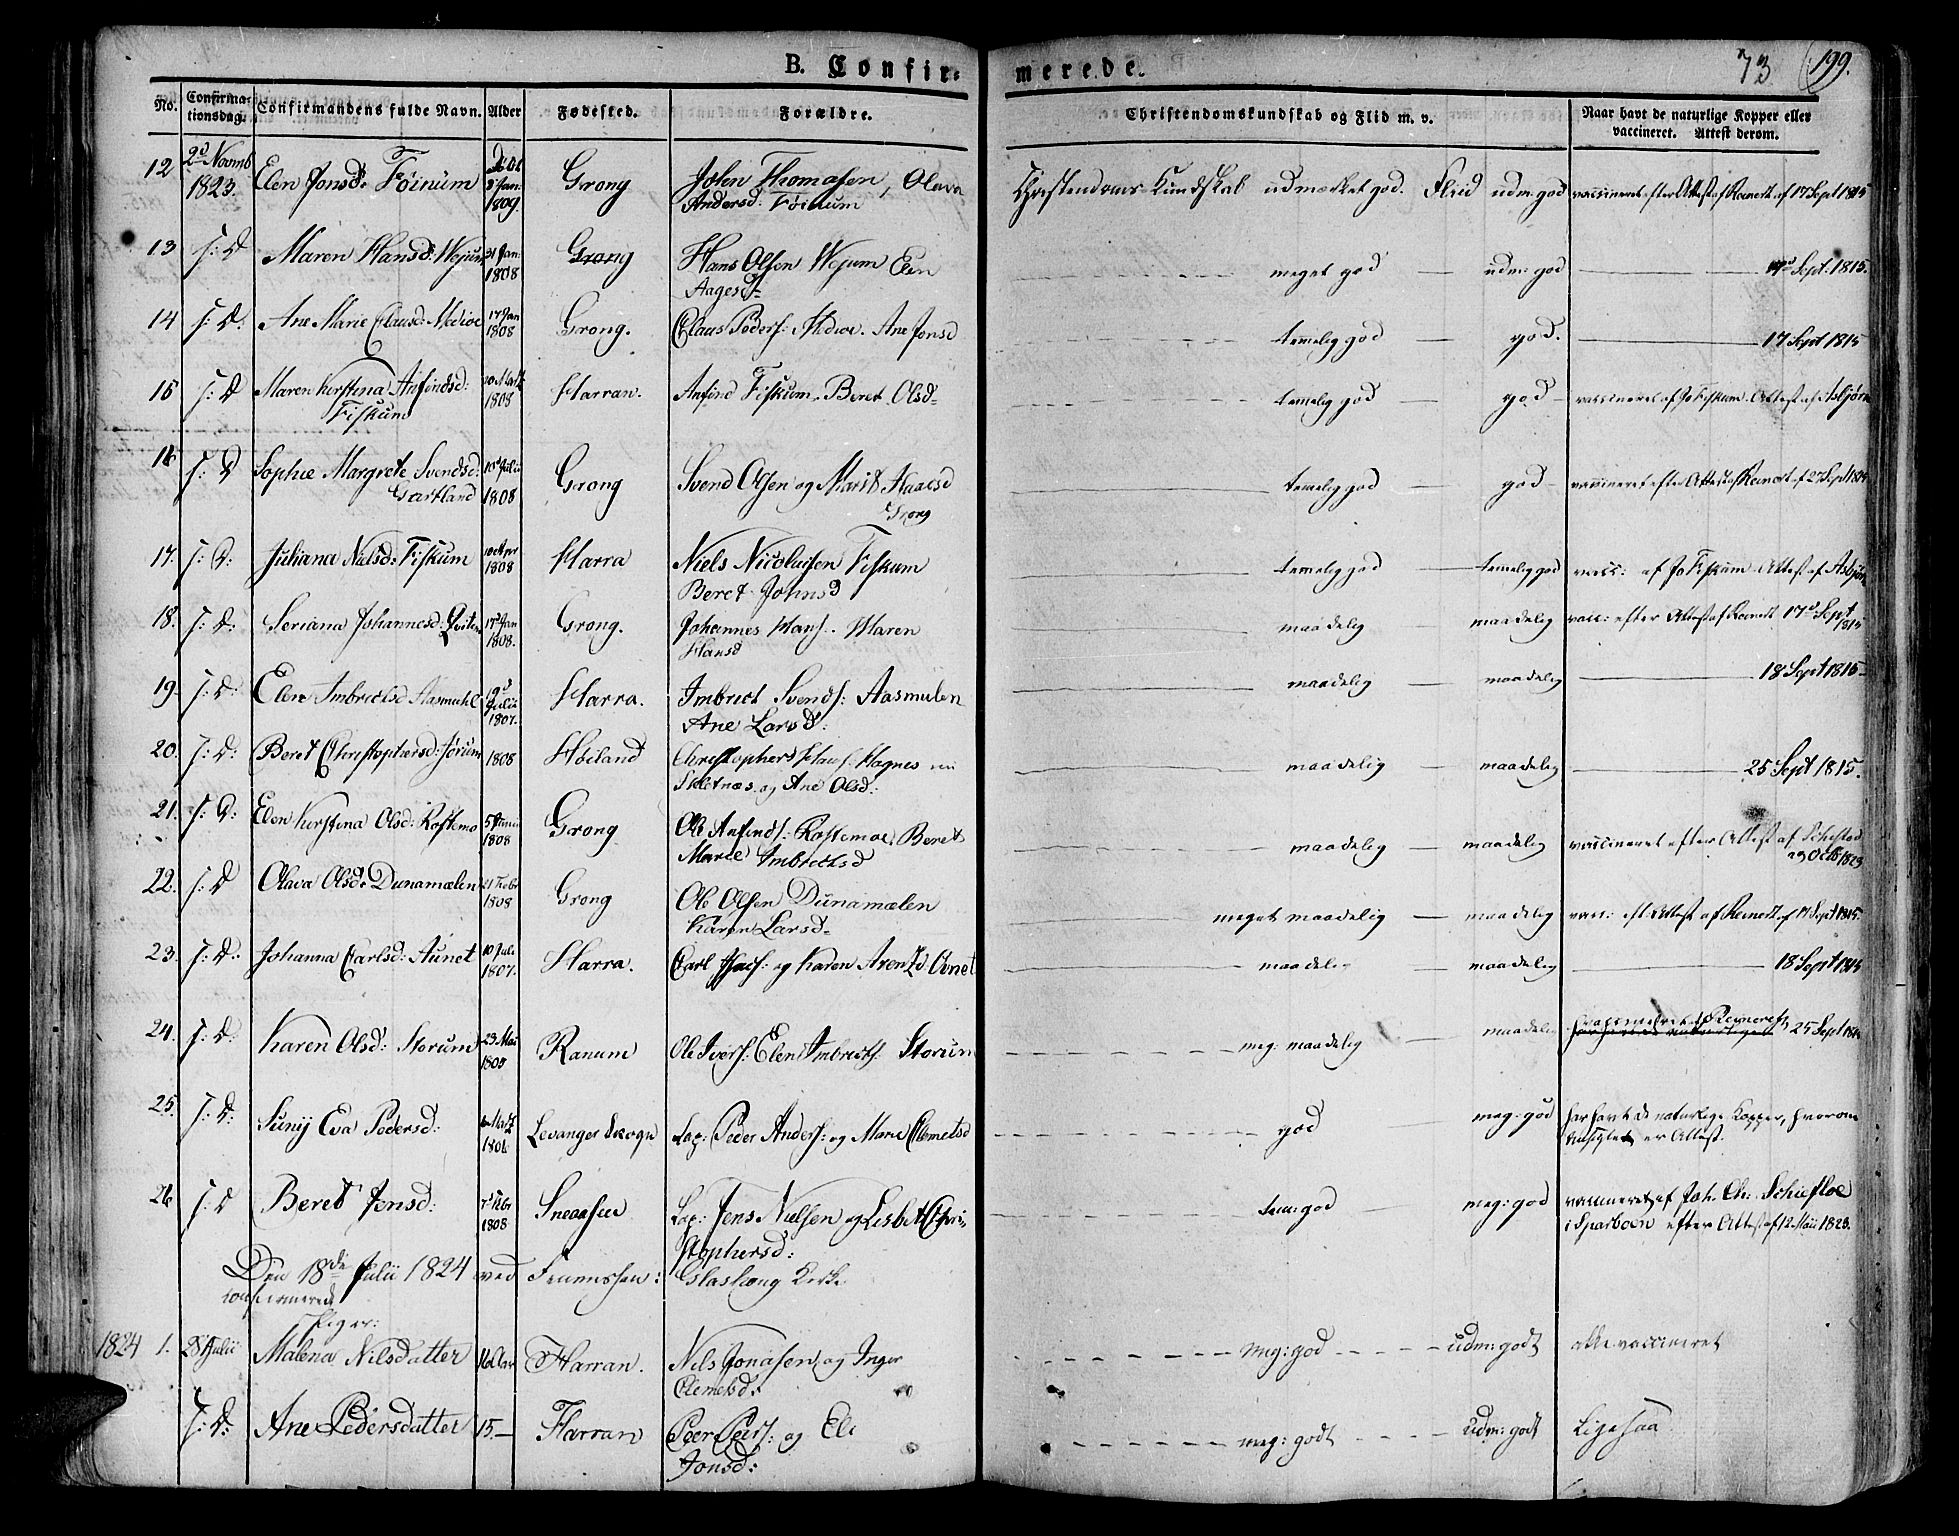 B. Confir-
merede.
73 199.
No. Confirmationsdag. Confirmandens fulde Navn. Alder Fødested. Forældre. Christendomskundskab og Flid m. v. Naar havt de naturlige Kopper eller vaccineret. Attest derom.
12 2d Novmb 1823. Elen Jonsd: Føinum 3 Jan: 1809. Grong John Thomasen, Olava Andersd: Føinum Christendoms Kundskab udmærket god. Flid udm: god vaccineret efter Attest af Reinert af 17 Sept 1815
13 I: D Maren Hansd: Wejum 31 Jan: 1808 Grong Hans Olsen Wejum Elen Aagesd meget god udm: god 17d Sept. 1815.
14 I: D: Ane Marie Clausd: Mediae 17 Jan 1808 Grong. Claus Peders: Mediae. Ane Jonsd temelig god god. 17 Sept 1815
15 I: D Maren Kerstina Anfindsd: Fiskum 20 Martz 1808 Harran. Anfind Fiskum. Beret Olsd- temelig god god vaccineret af Jo Fiskum Attest af Asbjørn
16 I: D Sophie Margrete Svendsd: Gartland 10d Julii 1808 Grong Svend Olsen og Marit Haaesd Grong temelig god god vaccineret efter Attest af Reinert af 27 Sept 1815
17. I: D: Juliana Nielsd: Fiskum 10 Apr 1808 Harra Niels Nicolaisen Fiskum Beret Johnsd temelig god temelig god vacc: af Jo Fiskum Attest af Asbjørn
18. I: D: Seriana Johannesd: Qviten 17d Jan 1808. Grong. Johannes Hans: Maren Hansd maadelig maadelig vacc: efter Attest af Reinert 17d Sept 1815
19 I: D: Elen Imbrictsd Aasmuhl 9d Julii 1807. Harra. Imbrict Svends: Aasmulen Ane Larsd: maadelig maadelig 18 Sept 1815
20. I: D: Beret Christophersd: Jørum 1808 Høiland Christophers Hans: Hagnes Skletnæs og Ane Olsd: maadelig maadelig 25 Sept 1815.
21. I: D: Elen Kerstina Olsd: Rostemo 5 Junii 1808 Grong Ole Anfinds: Rostemoe, Beret Marie Imbrictsd maadelig maadelig vaccineret efter Attest af Schestad 29 Octb 1823
22. I: D Olava Olsd: Dunamælen 21 Febr 1808 Grong Ole Olsen Dunamælen Karen Larsd- meget maadelig maadelig vacc: eft Attest af Reinert af 17 Sept 1815.
23. I: D: Johanna Carlsd: Aunet 10 Juli 1807. Harra. Carl Isacs: og Karen Arentzd: Ovnet maadelig maadelig 18 Sept 1815
24. I: D: Karen Olsd: Storum 23 Mai 1805 Ranum Ole Ivers: Elen Imbrects: Storum meg: maadelig maadelig 25 Sept 1815
25. I: D: Sunij Eva Pedersd: Martz 1806 Levanger Skogn Lap: Peder Anders: og Marie Clemetsd god meg: god har havt de naturlige Kopper, hvorom er Attest.
26 I: D Beret Jensd: 7d Febr 1808 Sneaasen Lap: Jens Nielsen og Lisbet Christophersd: tem: god meg: god vaccineret af Joh. Chr. Schiefloe i Sparboen efter Attest af 12 Maii 1823.
Den 18de Julii 1824 ved Glashaug Kirke
confirmerede
Piger:
1824 1. Julii Malena Nilsdatter 16 Aar Harran. Nils Jonasen og Inger Clemetsd: meg: god udm: godt vaccineret
I: D: Ane Pedersdatter 15.- Harran Peer Peers: og Eli Jonsd: meg: godt udm: godt Ligesaa